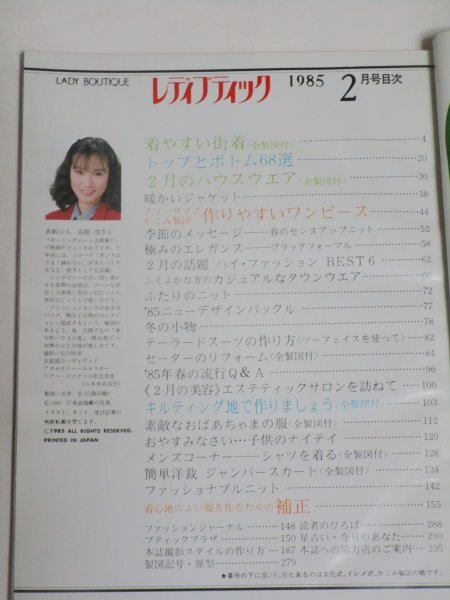 LADY BOUTIQUE レディブティック 1985 2月号目次
着やすい街着〈全製図付〉 4
トップとボトム68選 20
2月のハウスウエア〈全製図付〉 30
暖かいジャケット 38
スリーサイズかこみ製図 作りやすいワンピース 44
季節のメッセージ──春のセンスアップニット 52
極みのエレガンス──ブラックフォーマル 58
2月の話題 ハイ・ファッション BEST6 62
ふくよかな方のカジュアルなタウンウエア 66
ふたりのニット 72
'85ニューデザインバックル 77
冬の小物 78
テーラードスーツの作り方〈ツーフェイスを使って〉 82
セーターのリフォーム〈全製図付〉 84
'85年春の流行Q&A 96
《2月の美容》エステティックサロンを訪ねて 100
キルティング地で作りましょう〈全製図付〉 103
素敵なおばあちゃまの服〈全製図付〉 112
おやすみなさい…子供のナイティ 120
メンズコーナー──シャツを着る〈全製図付〉 128
簡単洋裁 ジャンパースカート〈全製図付〉 134
ファッショナブルニット 142
着心地のよい服を作るための 補正 155
ファッションジャーナル 148
ブティックプラザ 150
本誌撮影スタイルの作り方 187
製図記号・原型 279
読者のひろば 288
星占い・今月のあなた 290
本誌への協力店のご案内 295
表紙の人
©1985 ALL RIGHTS RESERVED.
PRINTED IN JAPAN